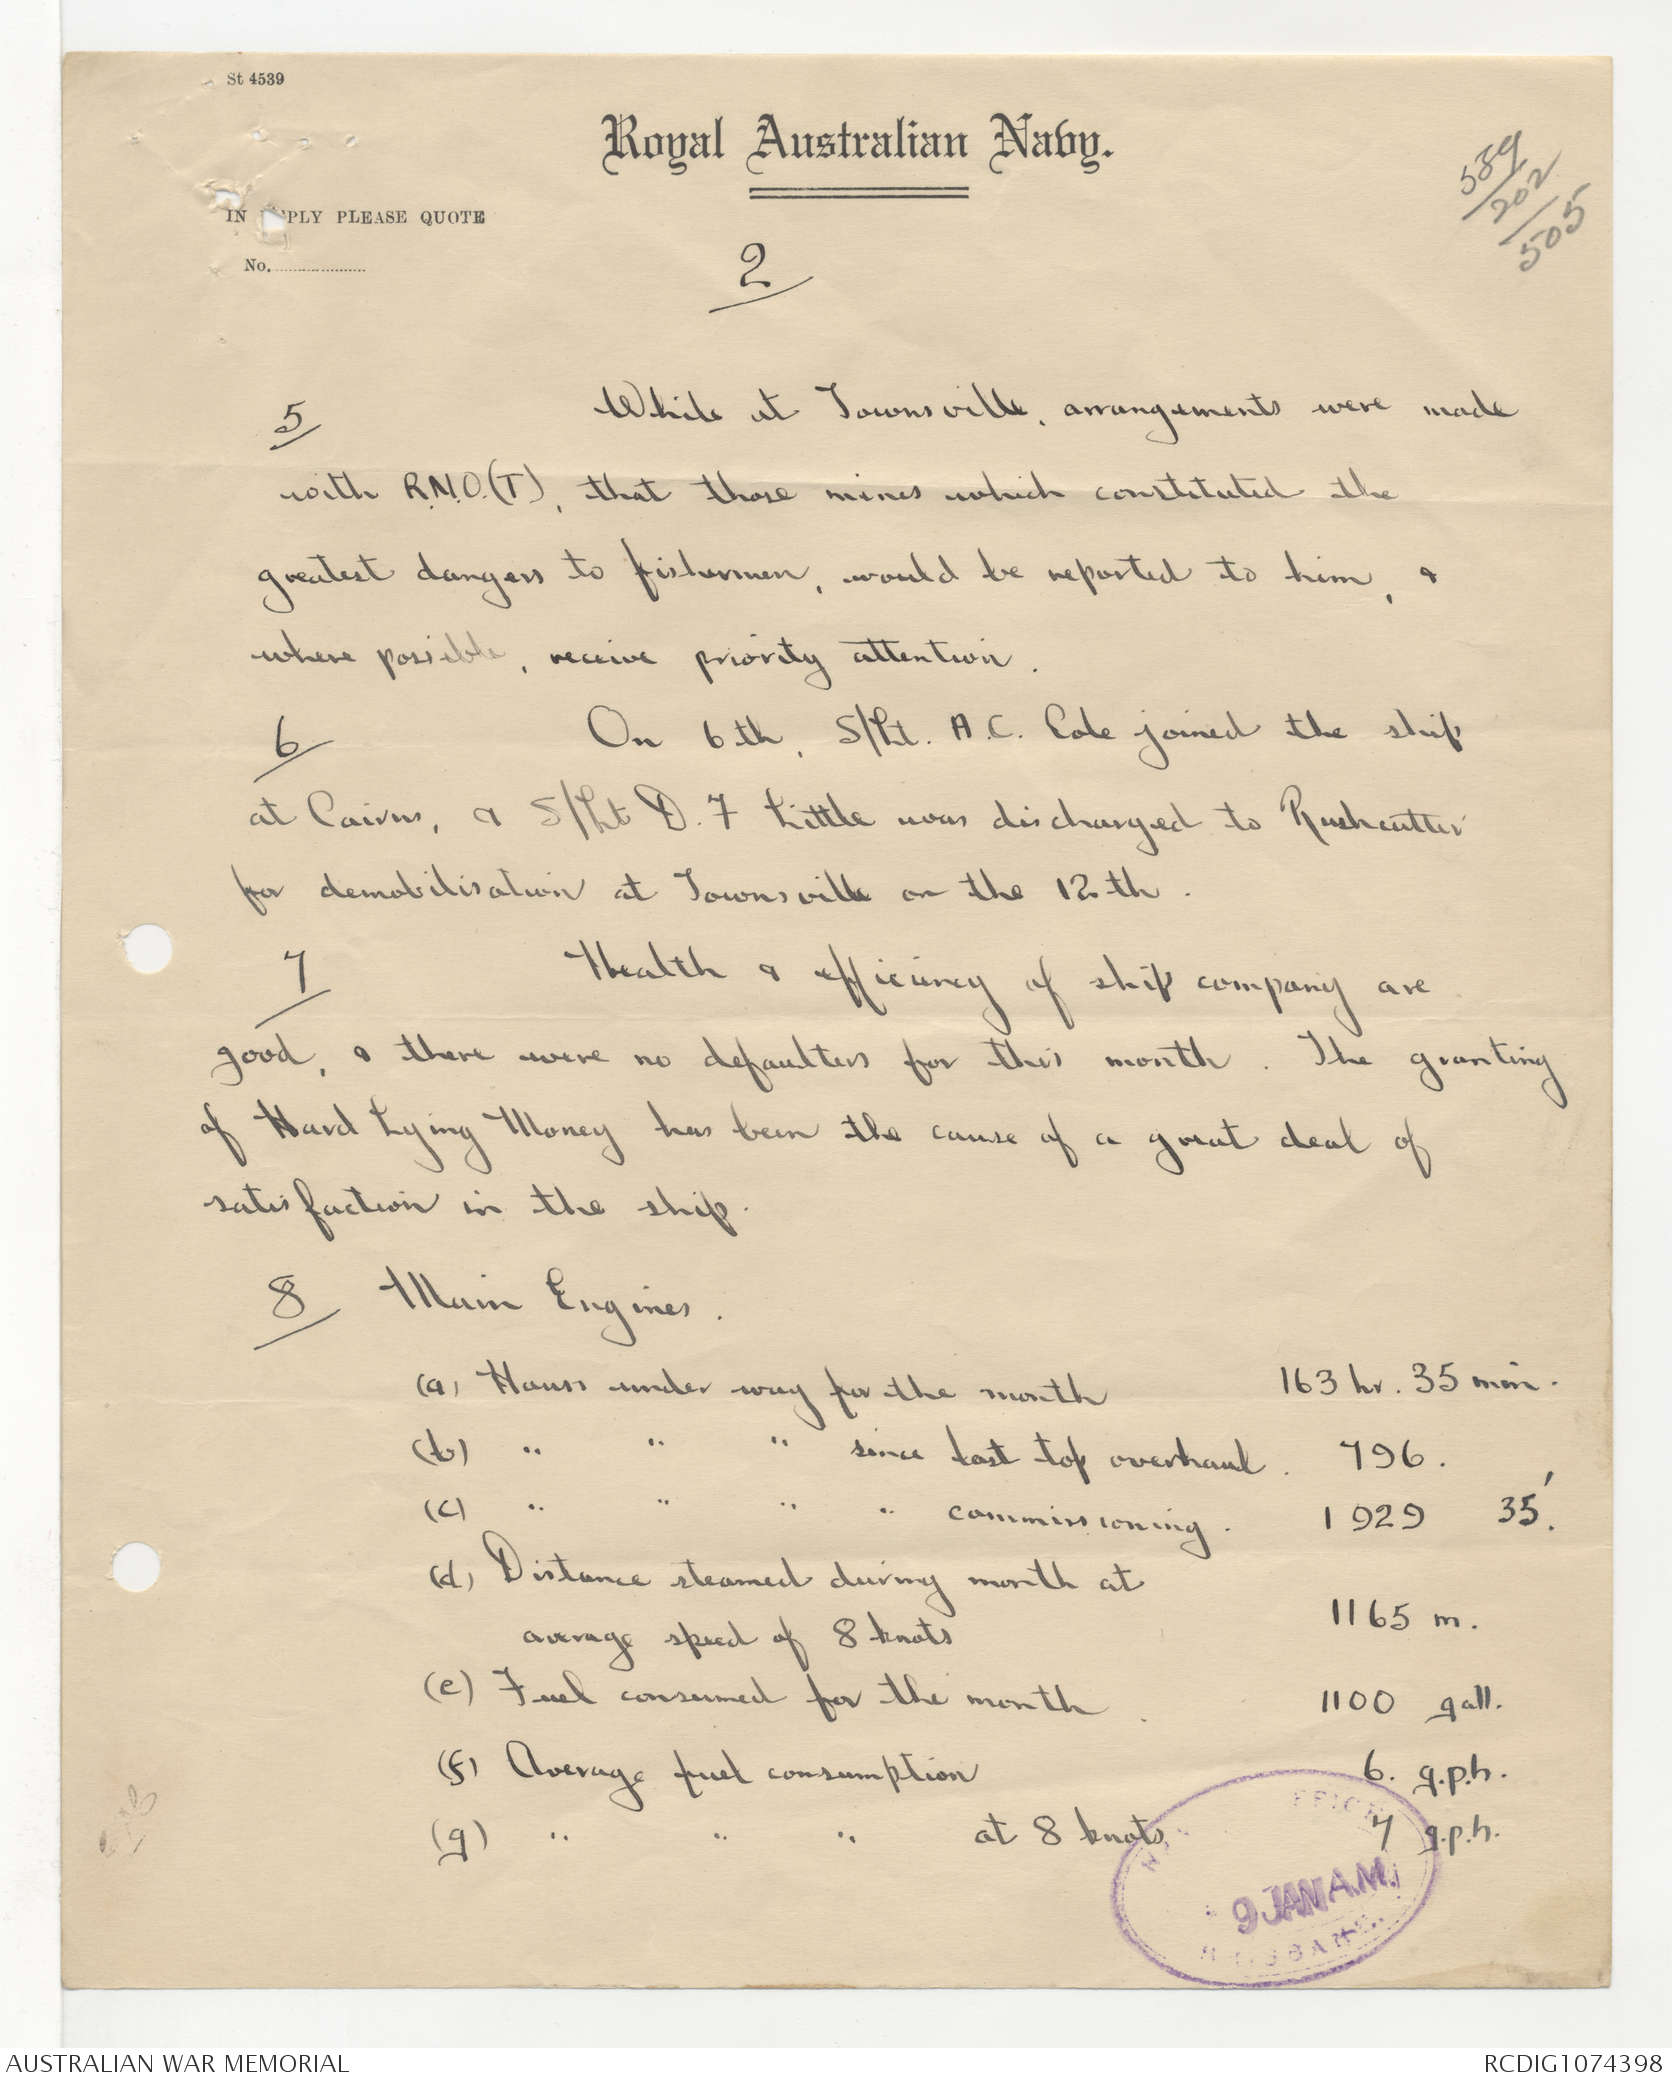 St 4539
Royal Australian Navy.
589
202
505
IN REPLY PLEASE QUOTE
No.
2
5 While at Townsville, arrangements were made
with R.N.O.(T), that those mines which constituted the
greatest dangers to fishermen, would be reported to him, &
where possible, receive priority attention.
6 On 6th, S/Lt. A.C. Cole joined the ship
at Cairns, & S/Lt D.F Little was discharged to Rushcutter
for demobilisation at Townsville on the 12th.
7 Health & efficiency of ship company are
good, & there were no defaulters for this month. The granting
of Hard Lying Money has been the cause of a great deal of
satisfaction in the ship.
8 Main Engines.
(a) Hours under way for the month 163 hr. 35 min.
(b) " " " since last top overhaul. 796.
(c) " " " " commissioning. 1929 35'.
(d) Distance steamed during month at
average speed of 8 knots 1165 m.
(e) Fuel consumed for the month. 1100 gall.
(f) Average fuel consumption 6. g.p.h.
(g) " " " at 8 knots 7 g.p.h.
9 JAN A.M.
BRISBANE
AUSTRALIAN WAR MEMORIAL RCDIG1074398